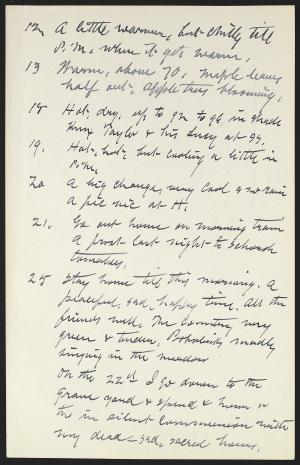 12. A little warmer, but chilly till
P.M. when it gets warm.
13 Warm, above 70, maple leaves
half out. Apple trees blooming.
18 Hot, dry, up to 92 to 96 in shade
Taylor & his Lucy at 99.
19. Hot, hot, but cooling a little in
P.M.
20 A big change, very cool & no rain
A pic nic at H.
21. Go out home on morning train
A frost last night to scorch
tomatoes.
25 Stay home till this morning. A
peaceful, sad, happy time. All the
friends well. The country very
green & tender. Bobolinks madly
singing in the meadow
On the 22d I go down to the
grave yard & spend & hour or
two in silent communion with
my dead – sad, sacred hours.